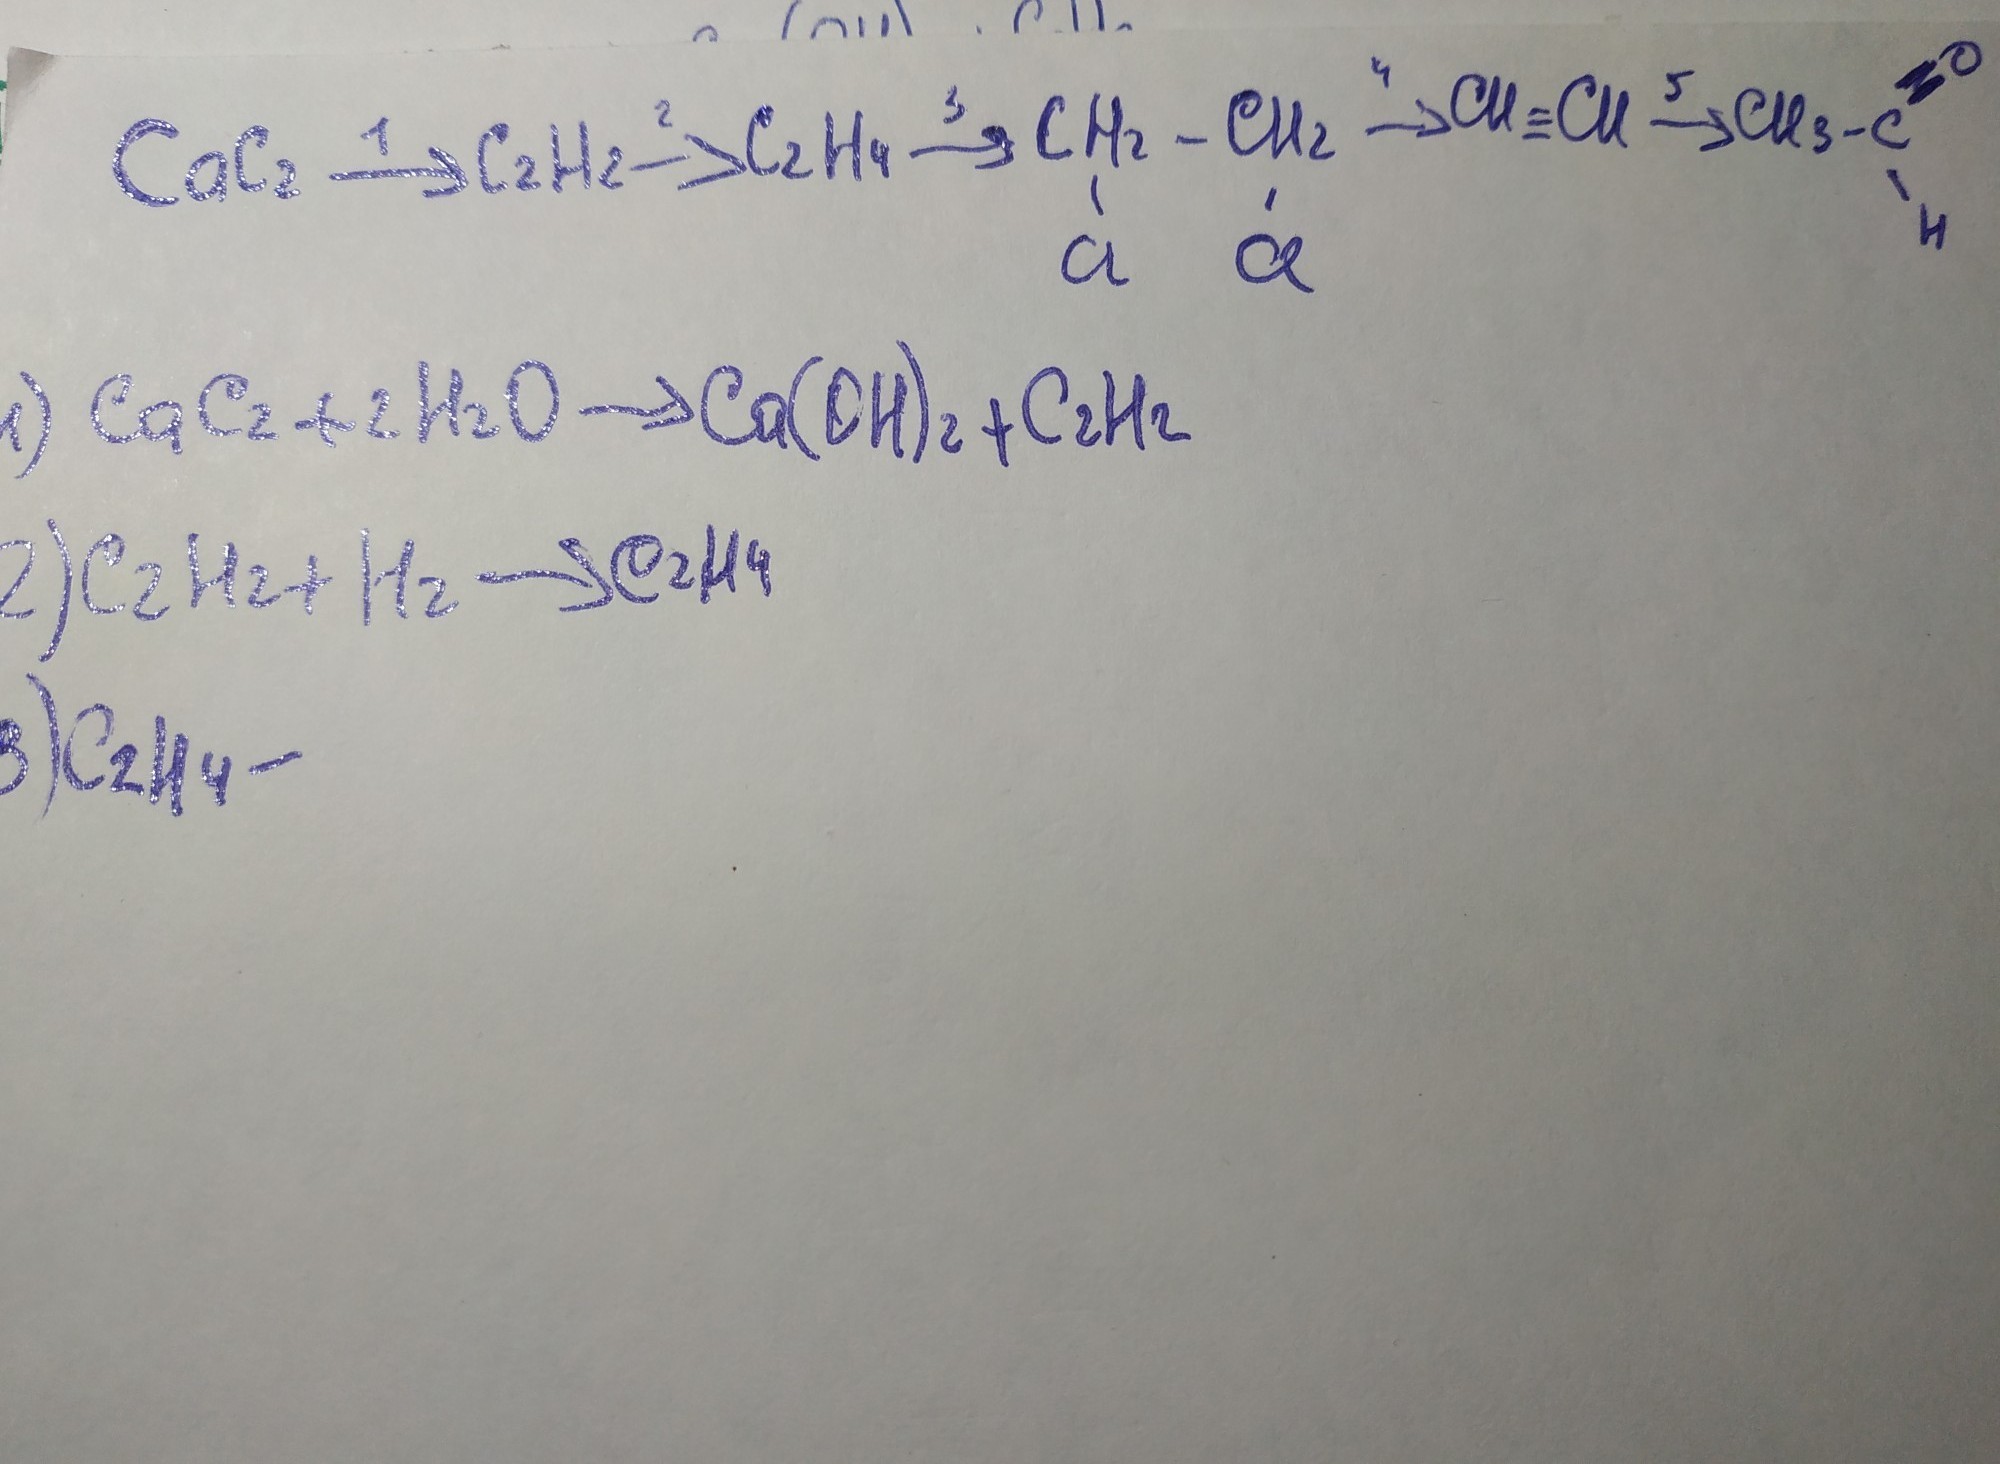 CaC2 1→ C2H2 2→ C2H4 3→ CH2 - CH2 4→ CH≡CH 5→ CH3-C=O
Cl Cl H
1) CaC2+2H2O→Ca(OH)2+C2H2
2) C2H2+H2→C2H4
3) C2H4-